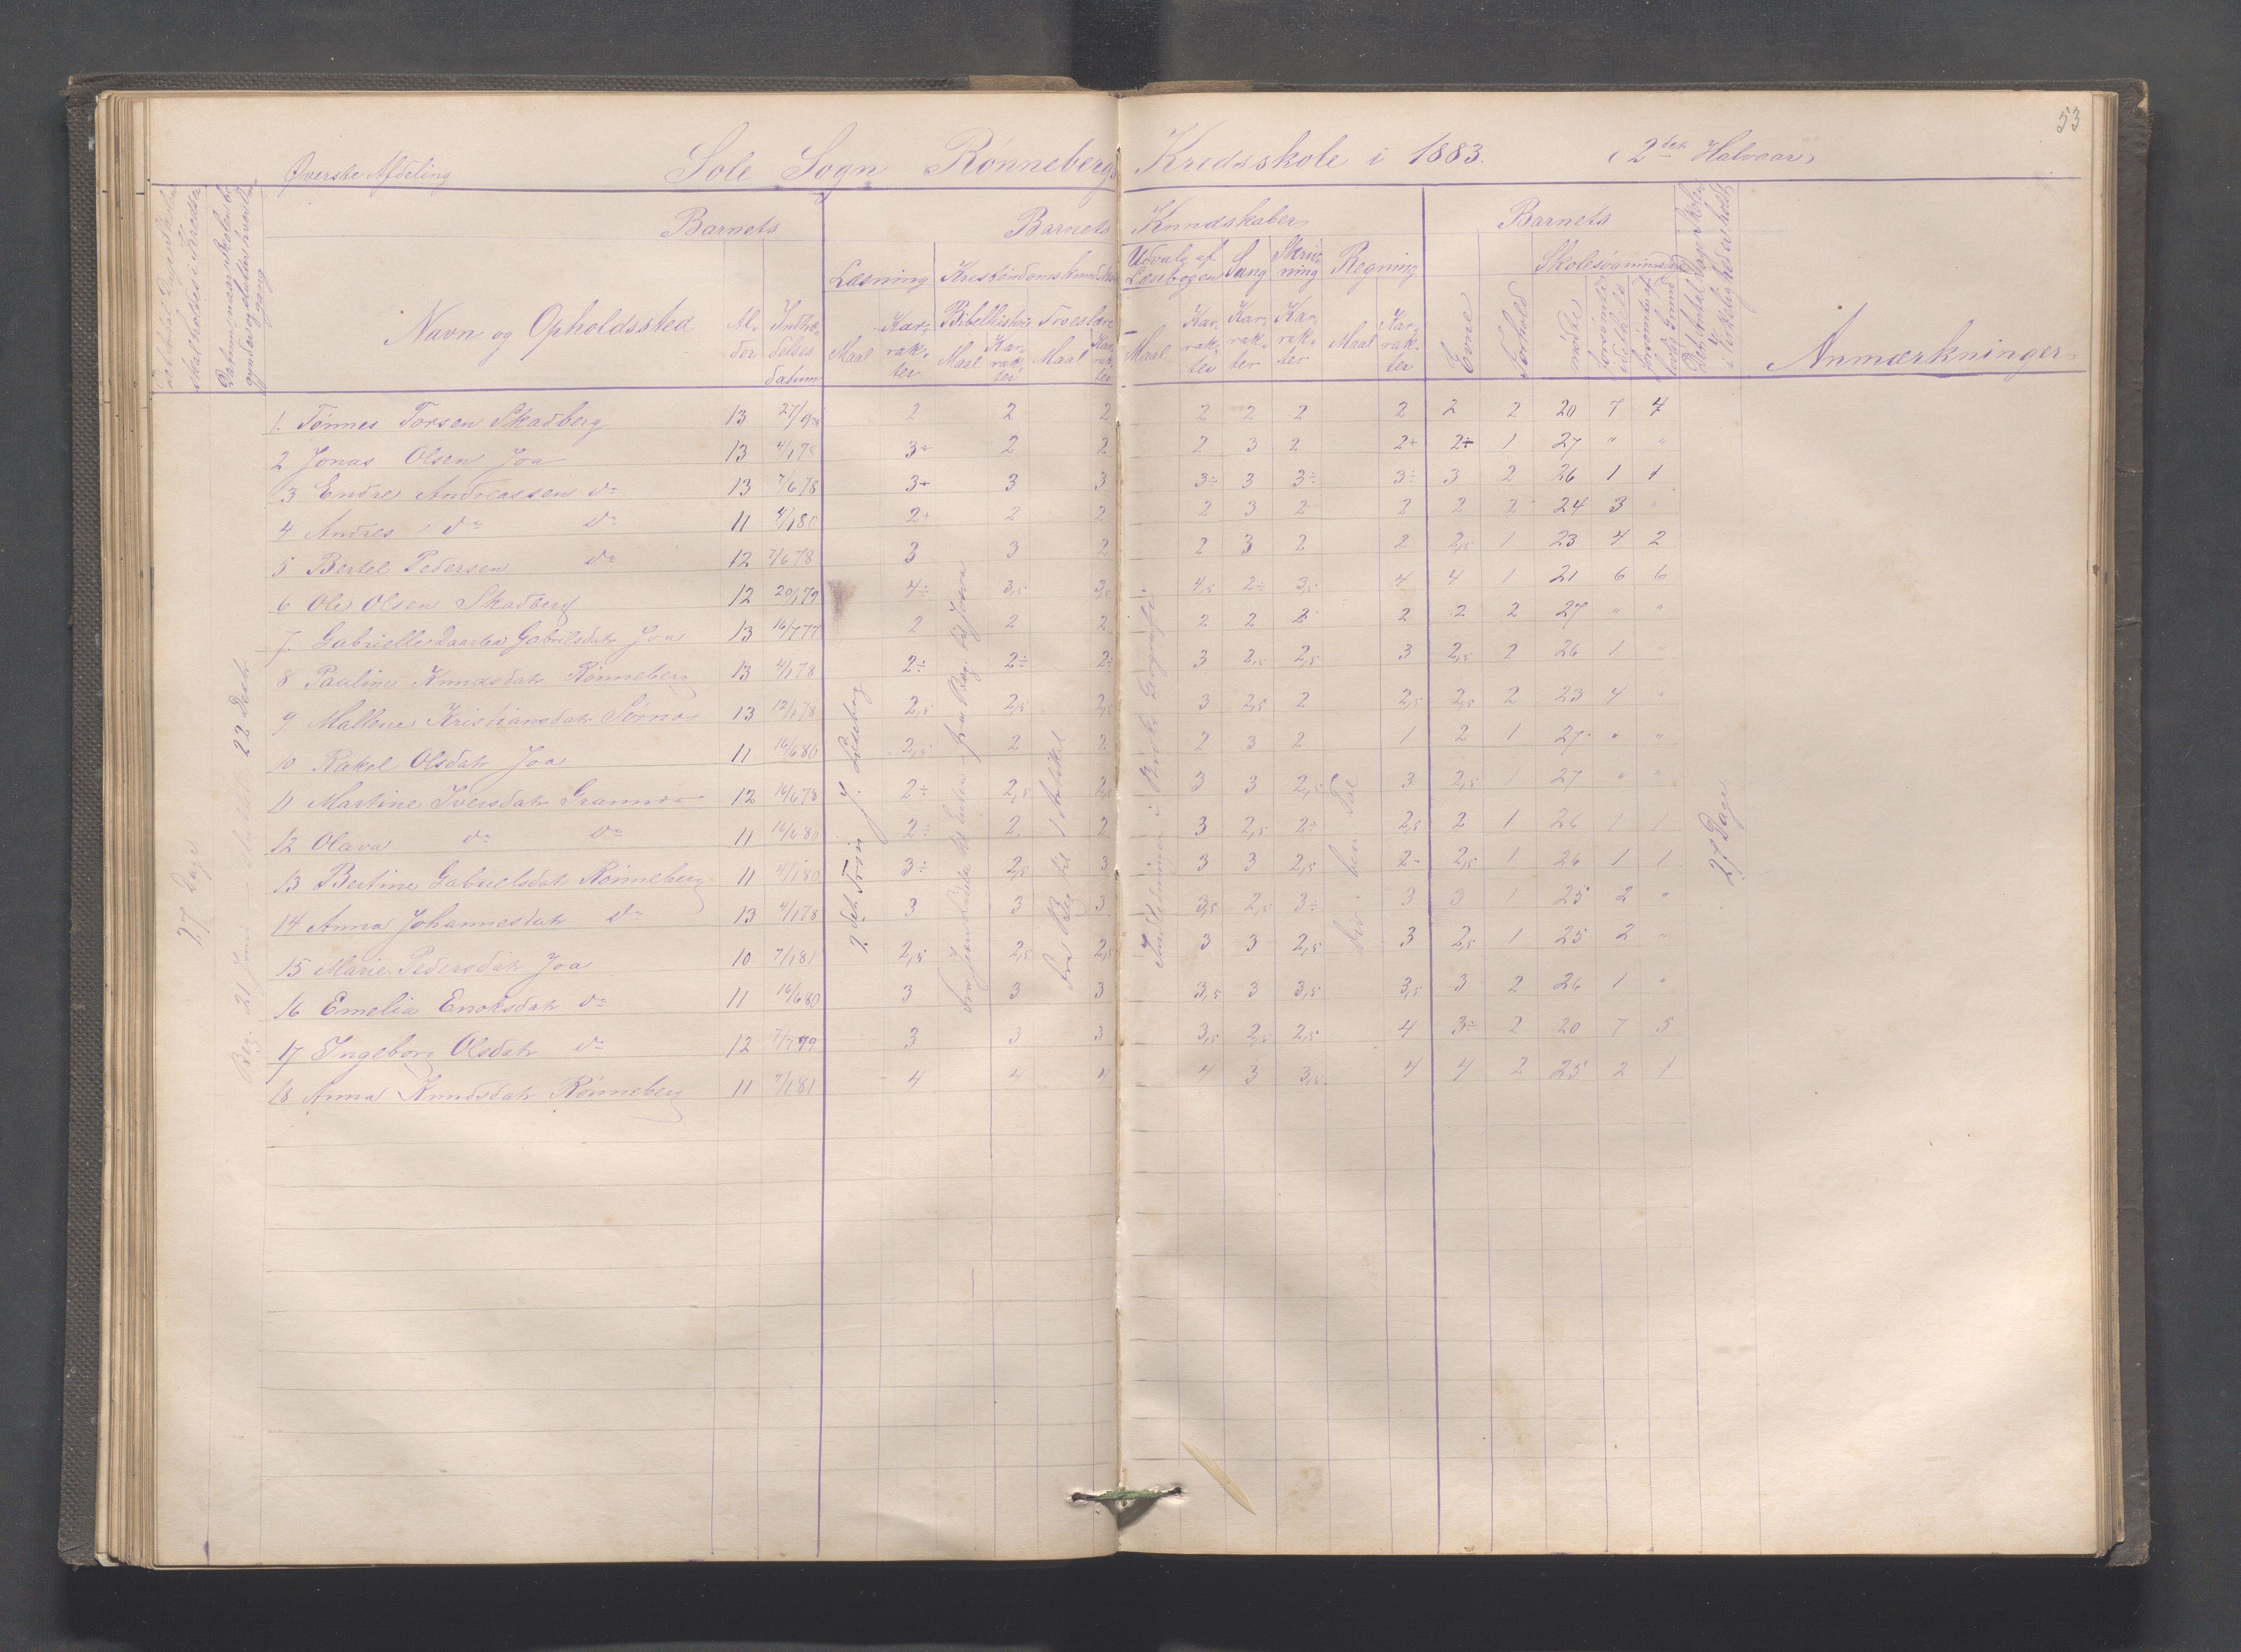 53
Øverste Afdeling Sole Sogn Rønnebergs Kredsskole i 1883. (2det Halvaar)
Barnets Barnets Kundskaber Barnets
Læsning Kristendomskundskab Udvalg af Læsebogen Sang Skrivning Regning Skolesøgning
Navn og Opholdssted Alder Indtrædelses datum Maal Karakter Bibelhistorie Maal Karakter Troeslære Maal Karakter Maal Karakter Karakter Karakter Maal Karakter Evne Forhold mødte Anmærkninger
1. Tønnes Torsen Skadberg 13 27/9 78 2 2 2 2 2 2 2 2 2 20 7 4
2 Jonas Olsen Joa 13 4/1 78 3+ 2 2 2 3 2 2+ 2÷ 1 27 " "
3 Endre Andreassen do 13 7/6 78 3+ 3 3 3÷ 3 3÷ 3÷ 3 2 26 1 1
4 Andres do do 11 4/1 80 2+ 2 2 2 3 2 2 2 2 24 3 "
5 Bertel Pedersen do 12 7/6 78 3 3 2 2 3 2 2 2,5 1 23 4 2
6 Ole Olsen Skadberg 12 20/1 79 4÷ 3,5 3,5 4,5 2÷ 3,5 4 4 1 21 6 6
7. Gabrielle Gabrielsdatr Joa 13 16/7 77 2 2 2 2 2 2 2 2 2 27 " "
8 Pauline Knudsdatr Rønneberg 13 4/1 78 2÷ 2÷ 2÷ 3 2,5 2,5 3 2,5 2 26 1 "
9 Mallene Kristiansdatr Sørnes 13 12/1 78 2,5 2,5 2,5 3 2,5 2 2,5 2,5 2 23 4 "
10 Rakel Olsdatr Joa 11 16/6 80 2,5 2 2 2 3 2 1 2 1 27 " "
11 Martine Iversdatr Grannes 12 16/6 78 2÷ 2,5 2,5 3 3 2,5 3 2,5 1 27 " "
12 Olava do do 11 16/6 80 2÷ 2 2 3 2,5 2÷ 2,5 2 1 26 1 1
13 Bertine Gabrielsdatr Rønneberg 11 4/1 80 3÷ 2,5 3 3 3 2,5 2÷ 2,5 1 26 1 1
14 Anna Johannesdatr do 13 4/1 78 3 3 3 3,5 2,5 3÷ 3 3 1 25 2 "
15 Marie Pedersdatr Joa 10 7/1 81 2,5 2,5 2,5 3 3 2,5 3 2,5 1 25 2 "
16 Emelia Enoksdatr do 11 16/6 80 3 3 3 3,5 3 3,5 3,5 3 2 26 1 "
17 Ingeborg Olsdatr do 12 7/7 79 3 3 3 3,5 2,5 2,5 4 3÷ 2 20 7 5
18 Anna Knudsdatr Rønneberg 11 7/1 81 4 4 4 4 3 3,5 4 4 2 25 2 1
27 Dage
Beg. 21 Juni 22 Decbr
27 Dage